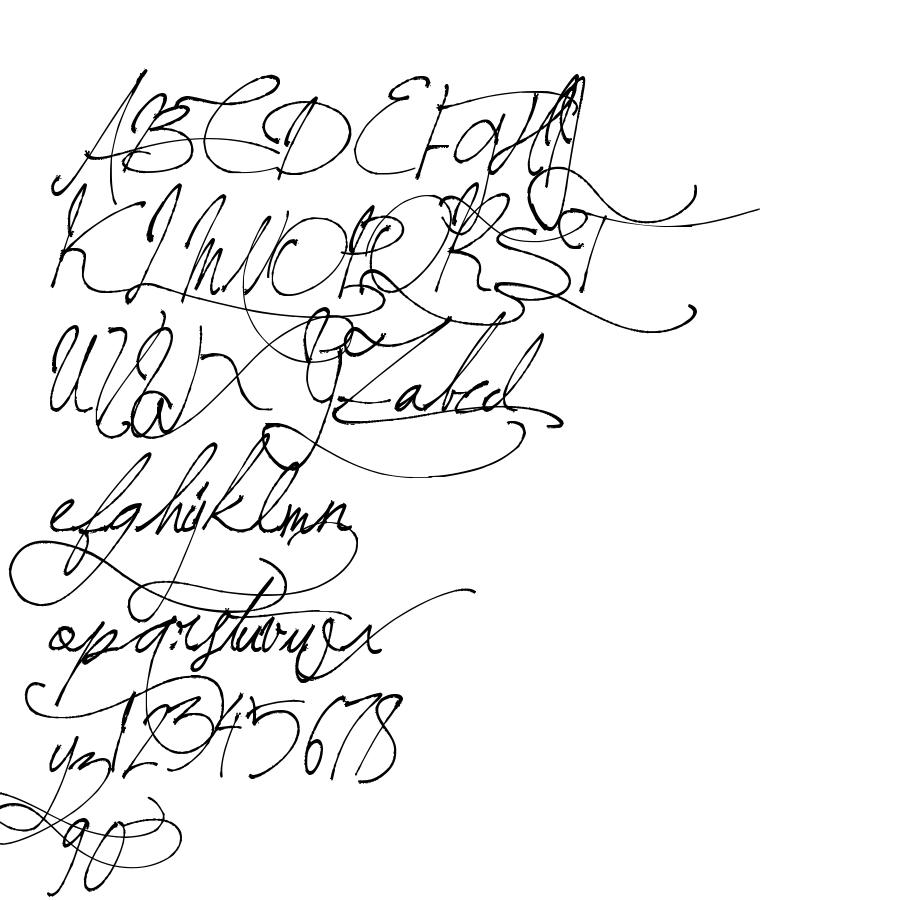 ABCDEFGHIJ
KLMNOPQRST
UVWXYZabcd
efghijklmn
opqrstuvwx
yz12345678
90